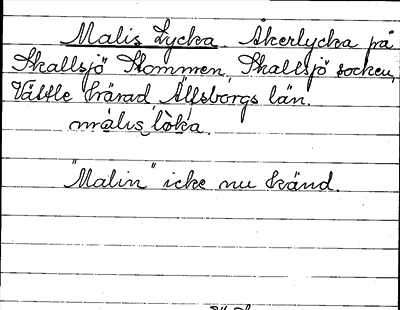 Malis Lycka. Åkerlycka på
Skallsjö Stommen, Skallsjö socken,
Vättle härad, Älfsborgs län.
målis lòka.
"Malin" icke nu känd.